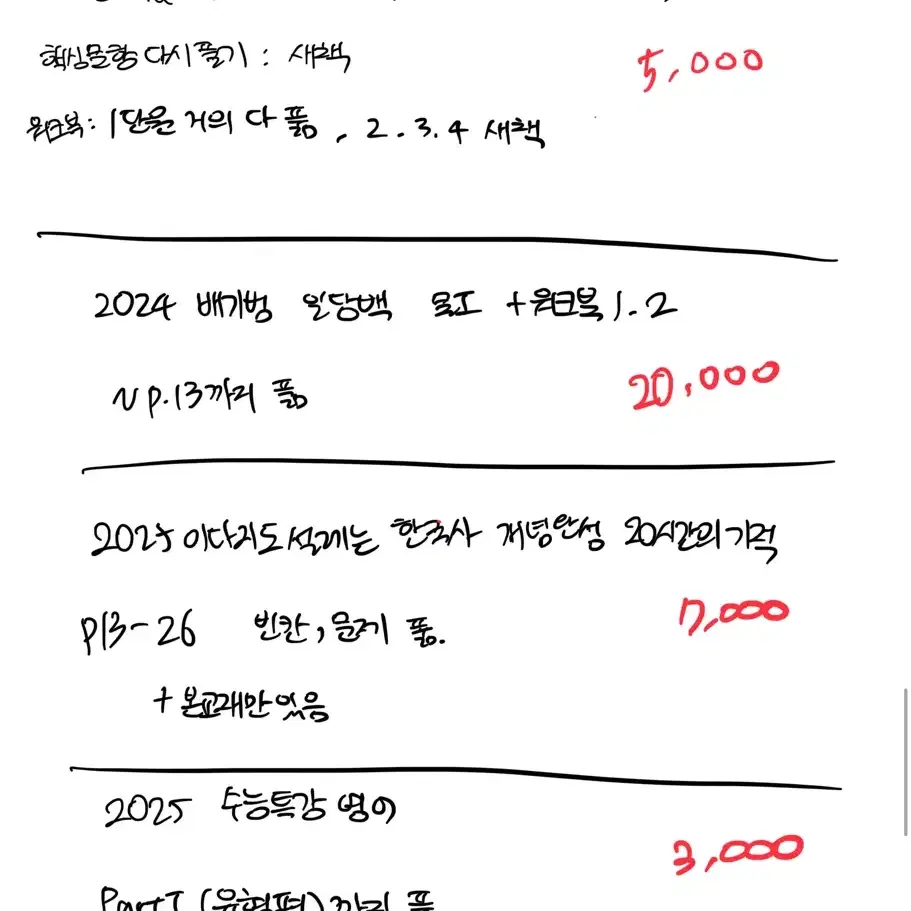 핵심문형 다시풀기 : 새책 5,000
워크북 : 1단원 거의 다 품 , 2.3.4 새책
2024 배기범 일당백 물I +워크북 1.2
~ p.13까지 품 20,000
2025 이다지도 설레는 한국사 개념완성 20시간의 기적
p13-26 빈칸, 문제 품. 7,000
+ 본교재만 있음
2025 수능특강 영어
3,000
Part I (유형편) 까지 품